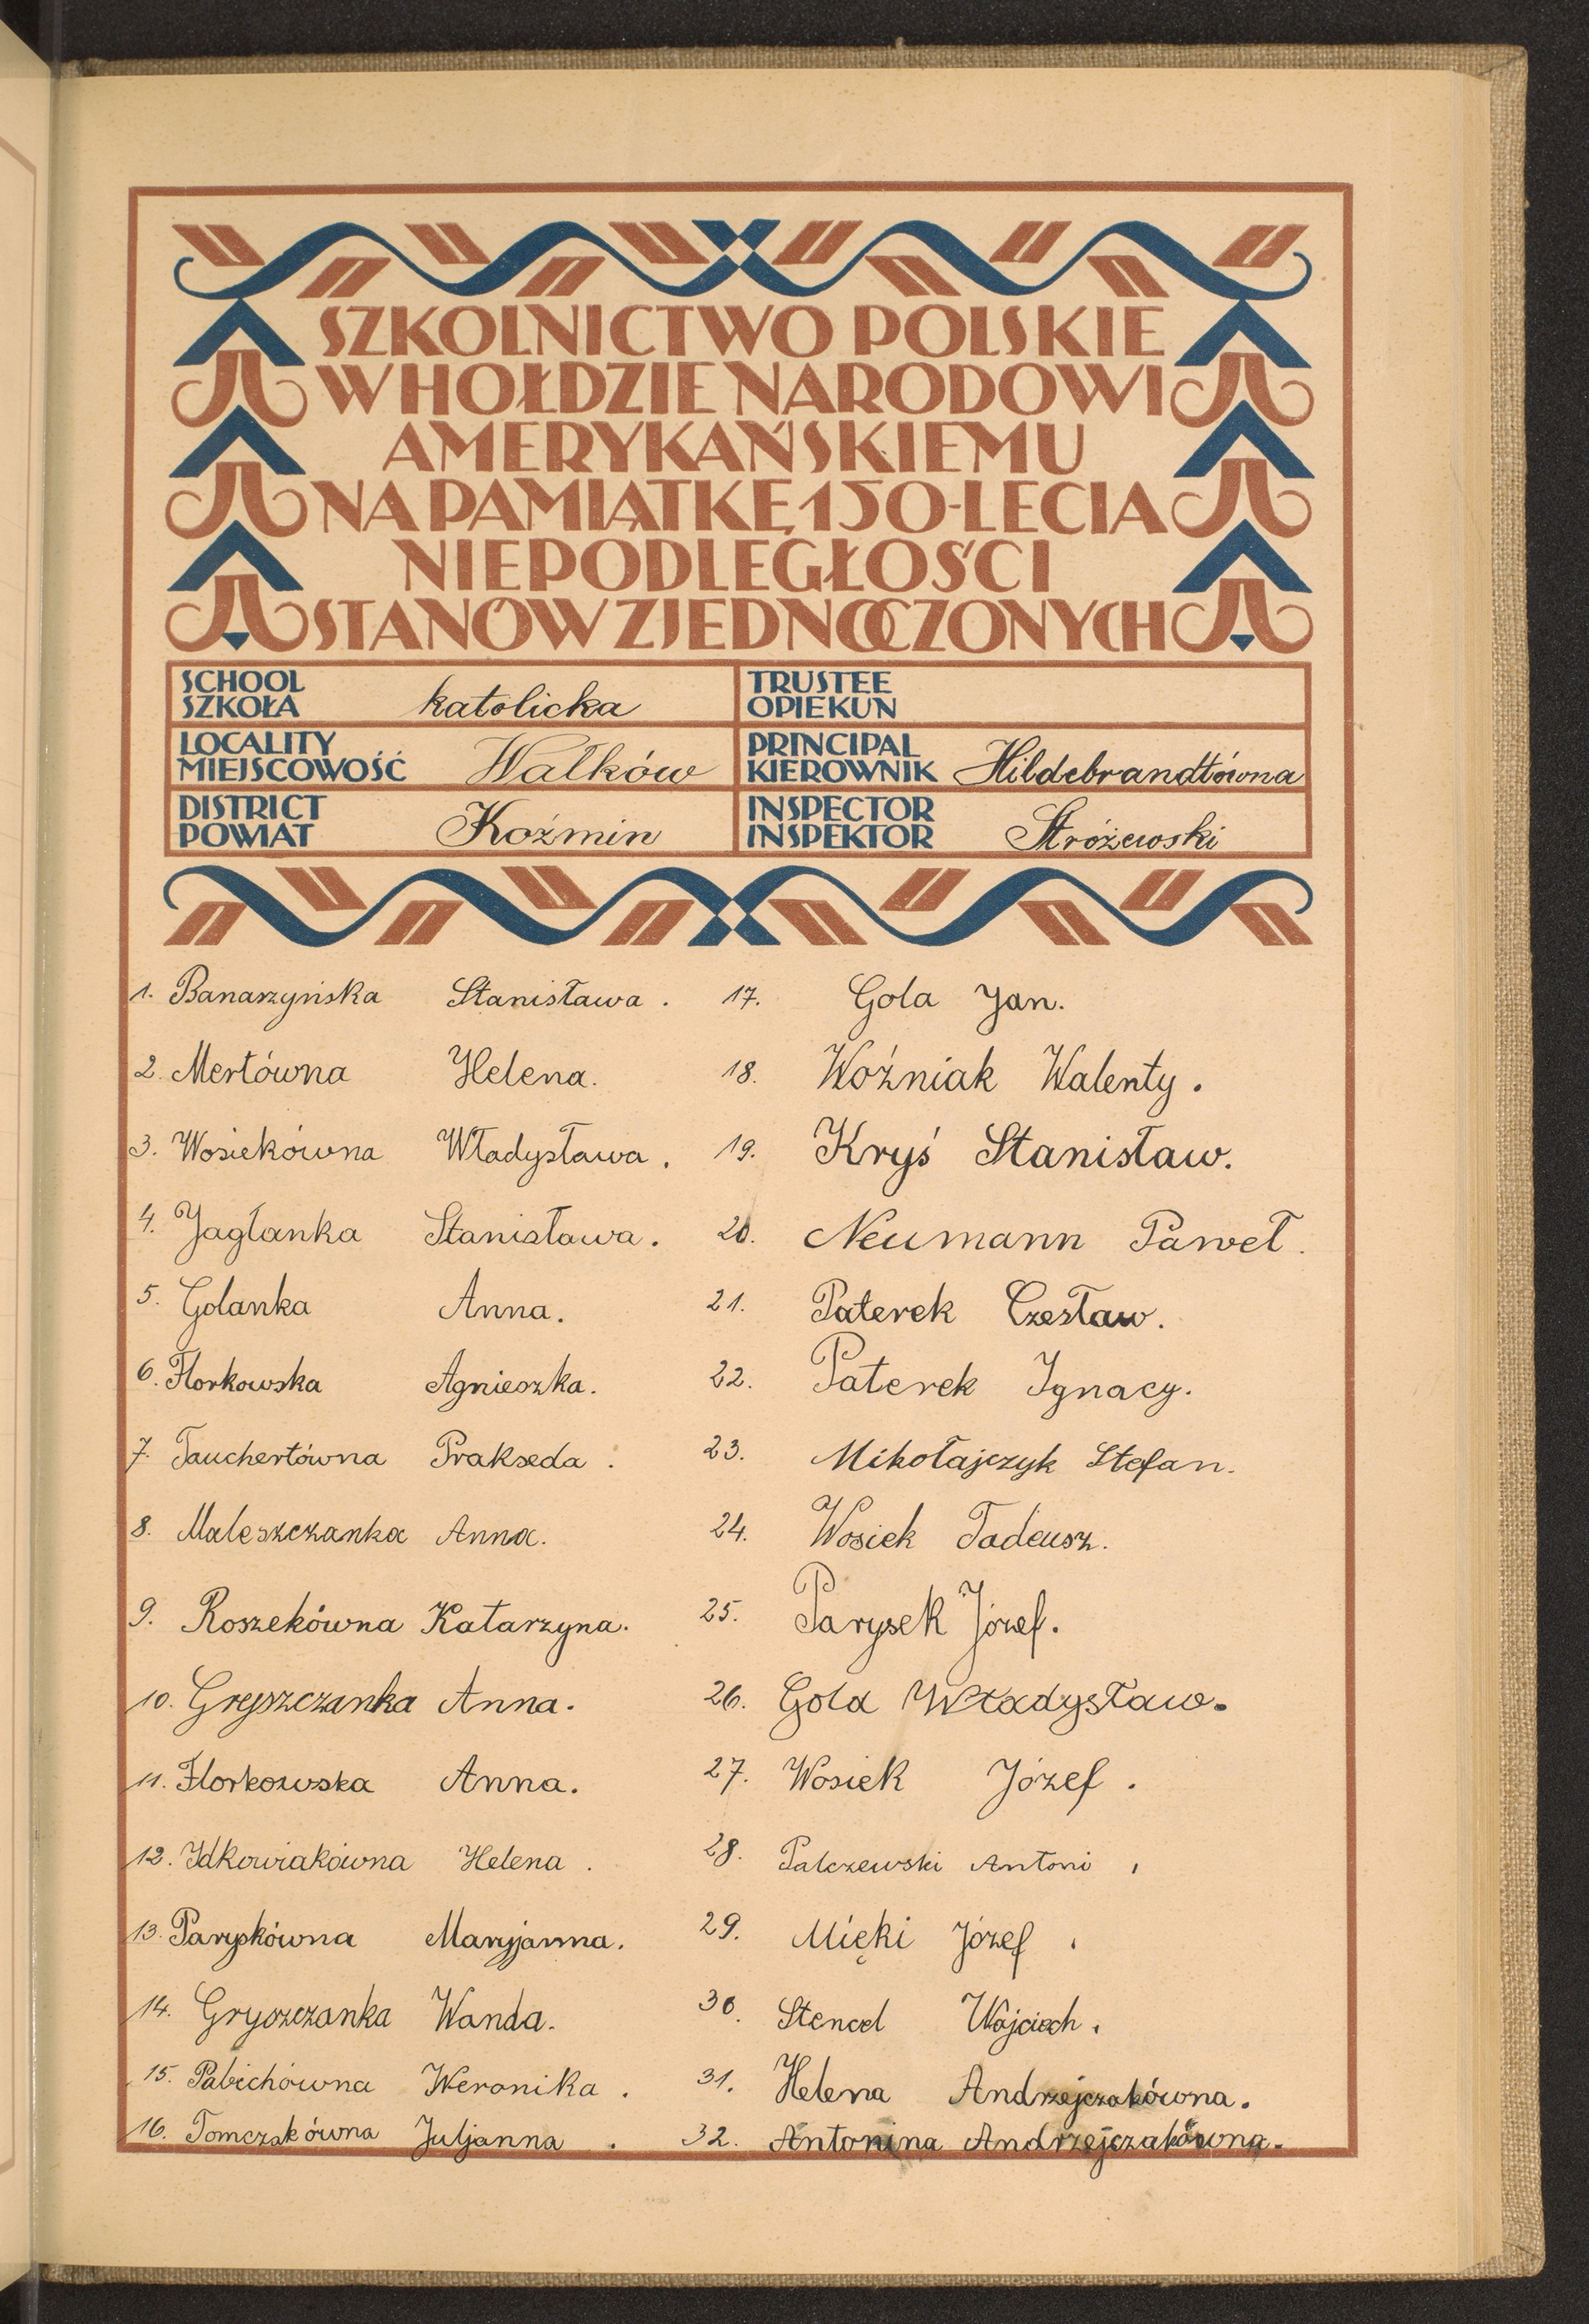 SZKOLNICTWO POLSKIE
W HOŁDZIE NARODOWI
AMERYKAŃSKIEMU
NA PAMIĄTKĘ 150-LECIA
NIEPODLEGŁOŚCI
STANÓW ZJEDNOCZONYCH
SCHOOL
SZKOŁA katolicka
TRUSTEE
OPIEKUN
LOCALITY
MIEJSCOWOŚĆ Wałków
PRINCIPAL
KIEROWNIK Hildebrandtówna
DISTRICT
POWIAT Koźmin
INSPECTOR
INSPEKTOR Stróżewski
1. Banaszyńska Stanisława.
2. Mertówna Helena.
3. Wosiekówna Władysława.
4. Jaglanka Stanisława.
5. Golanka Anna.
6. Florkowska Agnieszka.
7. Tauchertówna Prakseda.
8. Maleszczanka Anna.
9. Roszekówna Katarzyna.
10. Gryszczanka Anna.
11. Florkowska Anna.
12. Idkowiakówna Helena.
13. Paryskówna Maryjanna.
14. Gryszczanka Wanda.
15. Pabichówna Weronika.
16. Tomczakówna Juljanna.
17. Gola Jan.
18. Woźniak Walenty.
19. Kryś Stanisław.
20. Neumann Paweł.
21. Paterek Czesław.
22. Paterek Ignacy.
23. Mikołajczyk Stefan.
24. Wosiek Tadeusz.
25. Parysek Józef.
26. Gola Władysław.
27. Wosiek Józef.
28. Palczewski Antoni.
29. Mięki Józef.
30. Stencel Wojciech.
31. Helena Andrzejczakówna.
32. Antonina Andrzejczakówna.